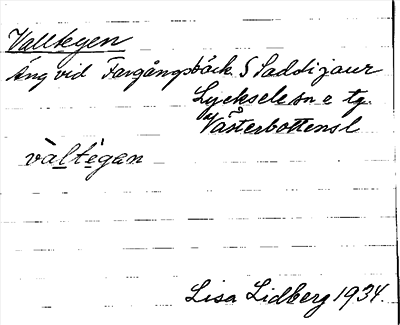 Valltegen
Äng vid Fargångsbäck S Saddijaur
Lycksele sn o tg.
Västerbottens l
valtegan
Lisa Lidberg 1934.